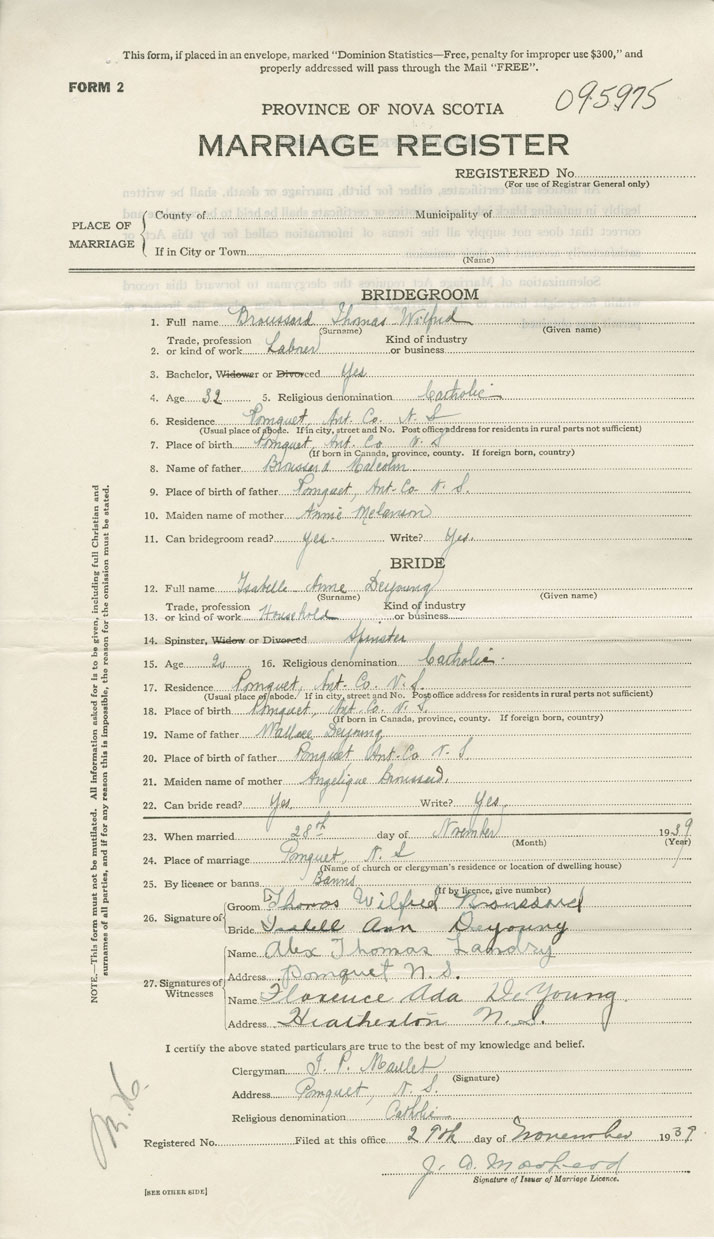 This form, if placed in an envelope, marked "Dominion Statistics—Free, penalty for improper use $300," and
properly addressed will pass through the Mail "FREE".
FORM 2
095975
PROVINCE OF NOVA SCOTIA
MARRIAGE REGISTER
REGISTERED No.
(For use of Registrar General only)
PLACE OF MARRIAGE
County of Municipality of
If in City or Town
(Name)
BRIDEGROOM
1. Full name Broussard Thomas Wilfred
(Surname) (Given name)
Trade, profession Kind of industry
2. or kind of work Labrer or business
3. Bachelor, Widower or Divorced Yes
4. Age 32 5. Religious denomination Catholic
6. Residence Pomquet, Ant. Co. N. S
(Usual place of abode. If in city, street and No. Post office address for residents in rural parts not sufficient)
7. Place of birth Pomquet, Ant. Co N. S
(If born in Canada, province, county. If foreign born, country)
8. Name of father Broussard Malcolm
9. Place of birth of father Pomquet, Ant-Co N. S.
10. Maiden name of mother Annie Melanson
11. Can bridegroom read? yes. Write? Yes.
BRIDE
12. Full name Isabelle Anne Deyoung
(Surname) (Given name)
Trade, profession Kind of industry
13. or kind of work Household or business
14. Spinster, Widow or Divorced Spinster
15. Age 20 16. Religious denomination Catholic.
17. Residence Pomquet, Ant. Co. N. S.
(Usual place of abode. If in city, street and No. Post office address for residents in rural parts not sufficient)
18. Place of birth Pomquet, Ant. Co. N. S.
(If born in Canada, province, county. If foreign born, country)
19. Name of father Wallace Deyoung
20. Place of birth of father Pomquet Ant-Co N. S
21. Maiden name of mother Angelique Broussard.
22. Can bride read? Yes Write? Yes.
23. When married 28th day of November 1939
(Month) (Year)
24. Place of marriage Pomquet, N. S
(Name of church or clergyman's residence or location of dwelling house)
25. By licence or banns Banns
(If by licence, give number)
26. Signature of
Groom Thomas Wilfred Broussard
Bride Isabell Ann Deyoung
27. Signatures of Witnesses
Name Alex Thomas Landry
Address Pomquet N.S.
Name Florence Ada DeYoung
Address Heatherton N. S.
I certify the above stated particulars are true to the best of my knowledge and belief.
Clergyman
(Signature)
Address Pomquet, N. S.
Religious denomination Catholic
Registered No. Filed at this office 29th day of November 1939.
Signature of Issuer of Marriage Licence.
[SEE OTHER SIDE]
NOTE.—This form must not be mutilated. All information asked for is to be given, including full Christian and
surnames of all parties, and if for any reason this is impossible, the reason for the omission must be stated.